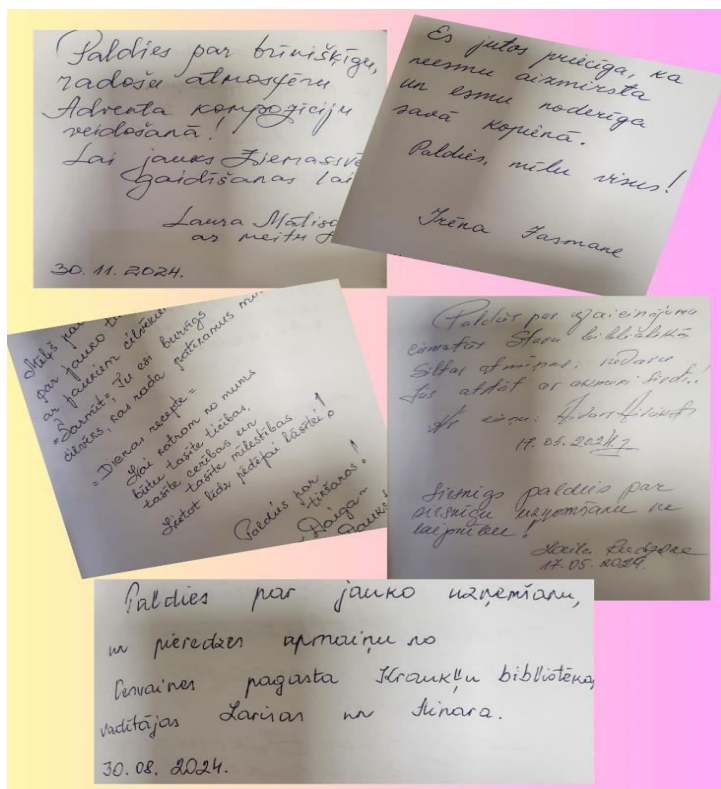 Paldies par brīnišķīgu,
radošu atmosfēru
Adventa kompozīciju
veidošanā!
Lai jauks Ziemassvē
gaidīšanas lai
Laura
ar meitu
30.11.2024.
Es jutos priecīga, ka
neesmu aizmirsta
un esmu noderīga
savā kopienā.
Paldies, mīlu visus!
Irēna Jasmane
par
par jauko
ar jaukiem cilvēkiem
"Sarmīt", Tu esi burvīgs
cilvēks, kas rada patīkamus
"Dienas recepte"
Lai katram no mums
būtu tasīte ticības,
tasīte cerības un
tasīte mīlestības
Lietot līdz pēdējai lāsītei!
Paldies par
tikšanos!
Daiga
Paldies par uzaicinājumu
ciemoties Staru bibliotēkā
Siltas atmiņas; nedaru
tās atstāt ar akmeni sirdī..!
Ar cieņu:
17.05.2024
Sirsnīgs paldies par
sirsnīgu uzņemšanu un
laipnību!
Laila
17.05.2024.
Paldies par jauko uzņemšanu,
un pieredzes apmaiņu no
Cesvaines pagasta Kraukļu bibliotēkas
vadītājas Larisas un Ainara.
30.08.2024.